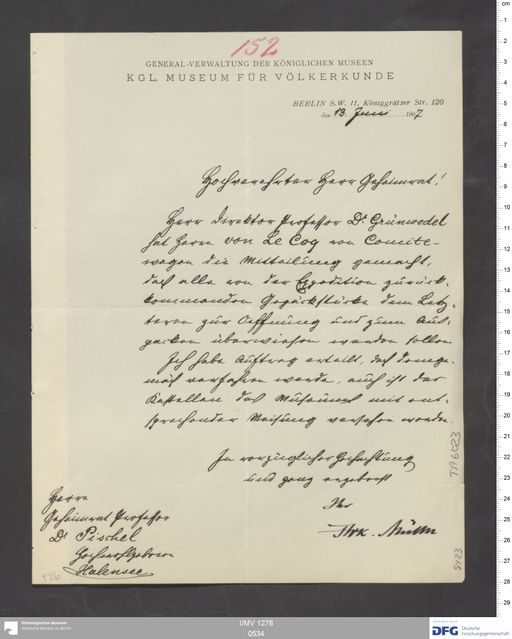 152
GENERAL-VERWALTUNG DER KÖNIGLICHEN MUSEEN
KGL. MUSEUM FÜR VÖLKERKUNDE
BERLIN S.W. 11, Königgrätzer Str. 120
den 13. Juni 1907
Hochverehrter Herr Geheimrat!
Herr Direktor Professor Dr. Grünwedel
hat Herrn von Le Coq von Comité-
wegen die Mitteilung gemacht,
daß alle von der Expedition zurück-
kommenden Gepäckstücke dem Letz-
teren zur Oeffnung und zum Aus-
packen überwiesen werden sollen
Ich habe Auftrag erteilt, daß demge-
mäß verfahren werde, auch ist der
Kastellan des Museums mit ent-
sprechender Weisung versehen worden.
In vorzüglicher Hochachtung
und ganz ergebenst
Ihr
Müller
Herrn
Geheimrat Professor
Dr. Pischel
Hochwohlgeboren
Halensee
TA 6023
Ethnologisches Museum
Staatliche Museen zu Berlin
I/MV 1278
0534
DFG Deutsche
Forschungsgemeinschaft